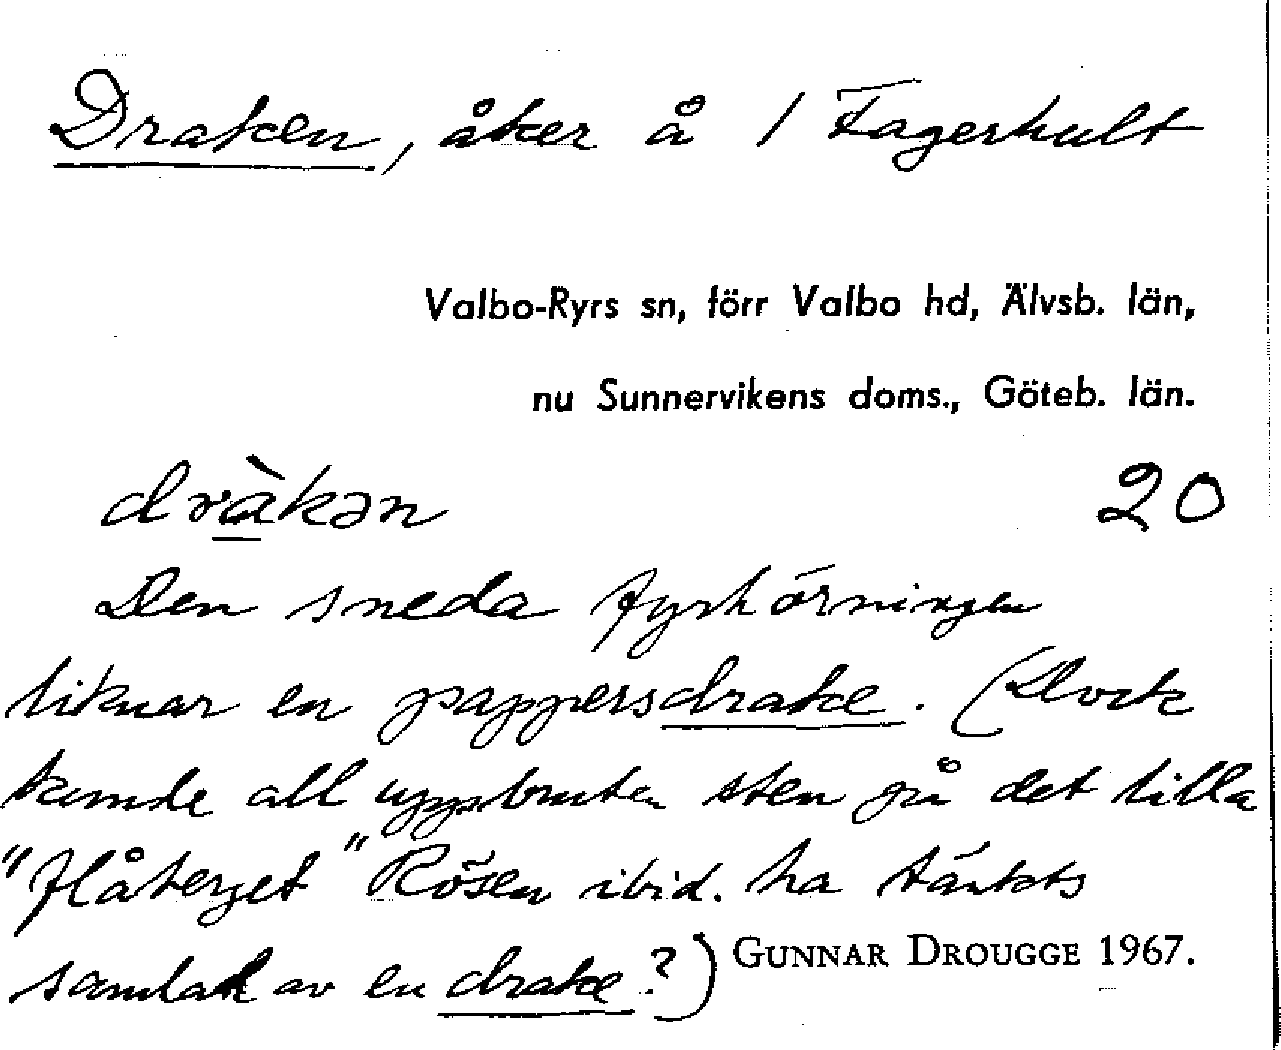 Draken, åker å 1 Fagerhult
Valbo-Ryrs sn, förr Valbo hd, Älvsb. län,
nu Sunnervikens doms., Göteb. län.
dràkən 20
Den sneda fyrhörningen
liknar en pappersdrake. (Dock
kunde all uppbruten sten på det lilla
"flåberget" Rösen ibid. ha tänkts
samlad av en drake?) GUNNAR DROUGGE 1967.